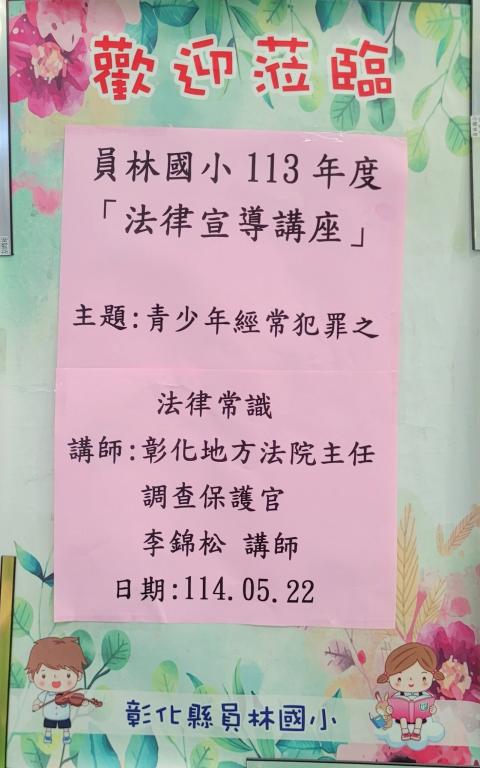 歡迎蒞臨
員林國小 113 年度
「法律宣導講座」
主題:青少年經常犯罪之
法律常識
講師:彰化地方法院主任
調查保護官
李錦松 講師
日期:114.05.22
彰化縣員林國小